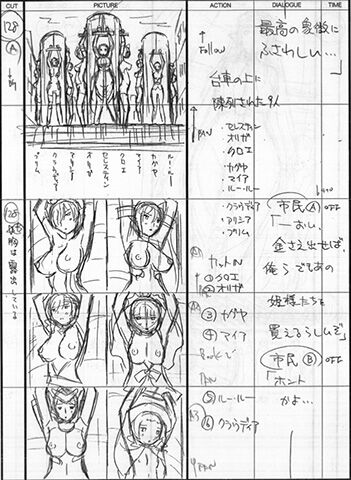 CUT
PICTURE
ACTION
DIALOGUE
TIME
128
A
Follow
最高の象徴に
ふさわしい…」
台車の上に
陳列された9人
PAN
・セレスティン
・オリガ
・クロエ
・カグヤ
・マイア
・ルー・ルー
・クラウディア
・アリシア
・プリム
プリム
クラウディア
アリシア
オリガ
セレスティン
クロエ
マイア
カグヤ
ルー・ルー
胸は露出している
市民 A OFF
「―おい、
金さえ出せば、
俺らでもあの
姫様たちを
買えるらしいぜ
市民 B OFF
「ホント
かよ…
カットIN
①クロエ
②オリガ
③カグヤ
④マイア
Bookで
PAN
⑤ルー・ルー
⑥クラウディア
PAN